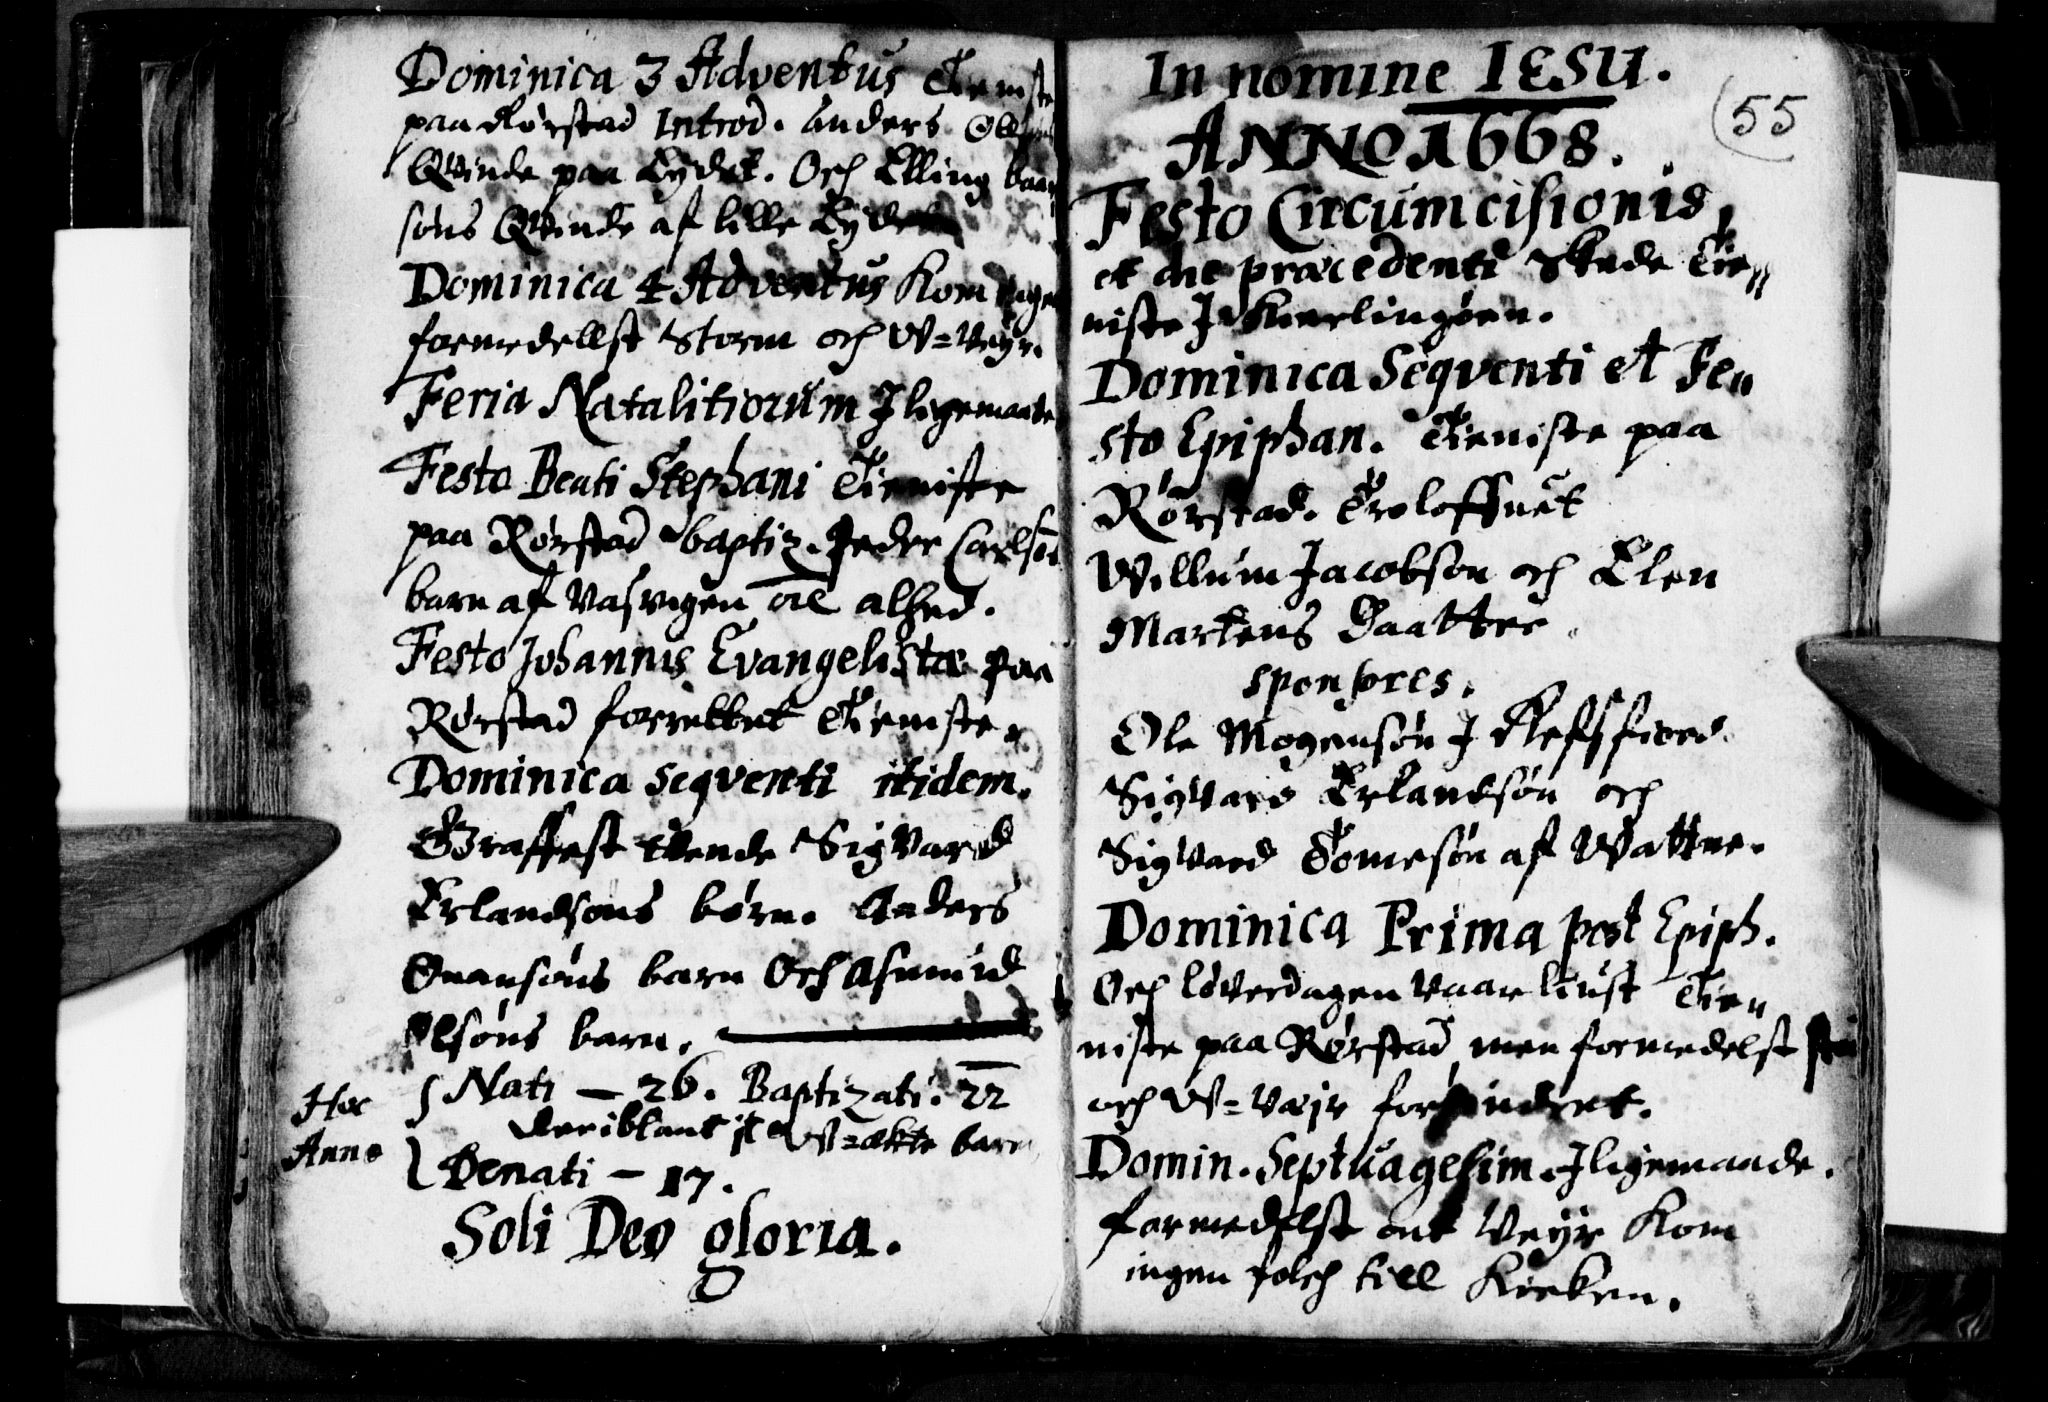 Dominica 3 Adventus Tieniste
paa Rørstad Introd. Anders Olsøns
Qvinde paa Eydet. Och Elling baar
søns Qvinde af lille Eydet
Dominica 4 Adventus Kom ingen
formedellst Storm och W=Veyr.
Feria Natalitiorum Jligemaade
Festo Beati Stephani Tieniste
paa Rørstad baptiz. Peder Carlsøns
barn af Vasvigen
Festo Johannis Evangelistæ paa
Rørstad forrettet Tieniste.
Dominica seqventi itidem.
Graffest tvende Sigvard
Erlandsøns børn. Anders
Onansøns barn Och Asmund
Olsøns barn.
Hoc Anno
Nati – 26. Baptizati. 22
deriblant it W=ækte barn
Denati – 17.
Soli Deo gloria.
In nomine IESU.
(55
ANNO 1668.
Festo Circumcisionis,
et die præcedenti Skede Tie=
niste J Kierlingøen.
Dominica Seqventi et Fe=
sto Epiphan. Tieniste paa
Rørstad. Troloffuet
Willum Jacobson och Elen
Martens Daatter.
sponsores.
Ole Mogensøn J Leffsfiord.
Sigvard Erlandsøn och
Sigvard Tomesøn af Wattne.
Dominica Prima post Epiph.
Och løverdagen vaar liust Tien=
niste paa Rørstad men formedelst
och W=Vejr forhindret.
Domin. Septuagesim. Jligemaade.
formedelst ont Veyr Kom
ingen folch till Kirken.